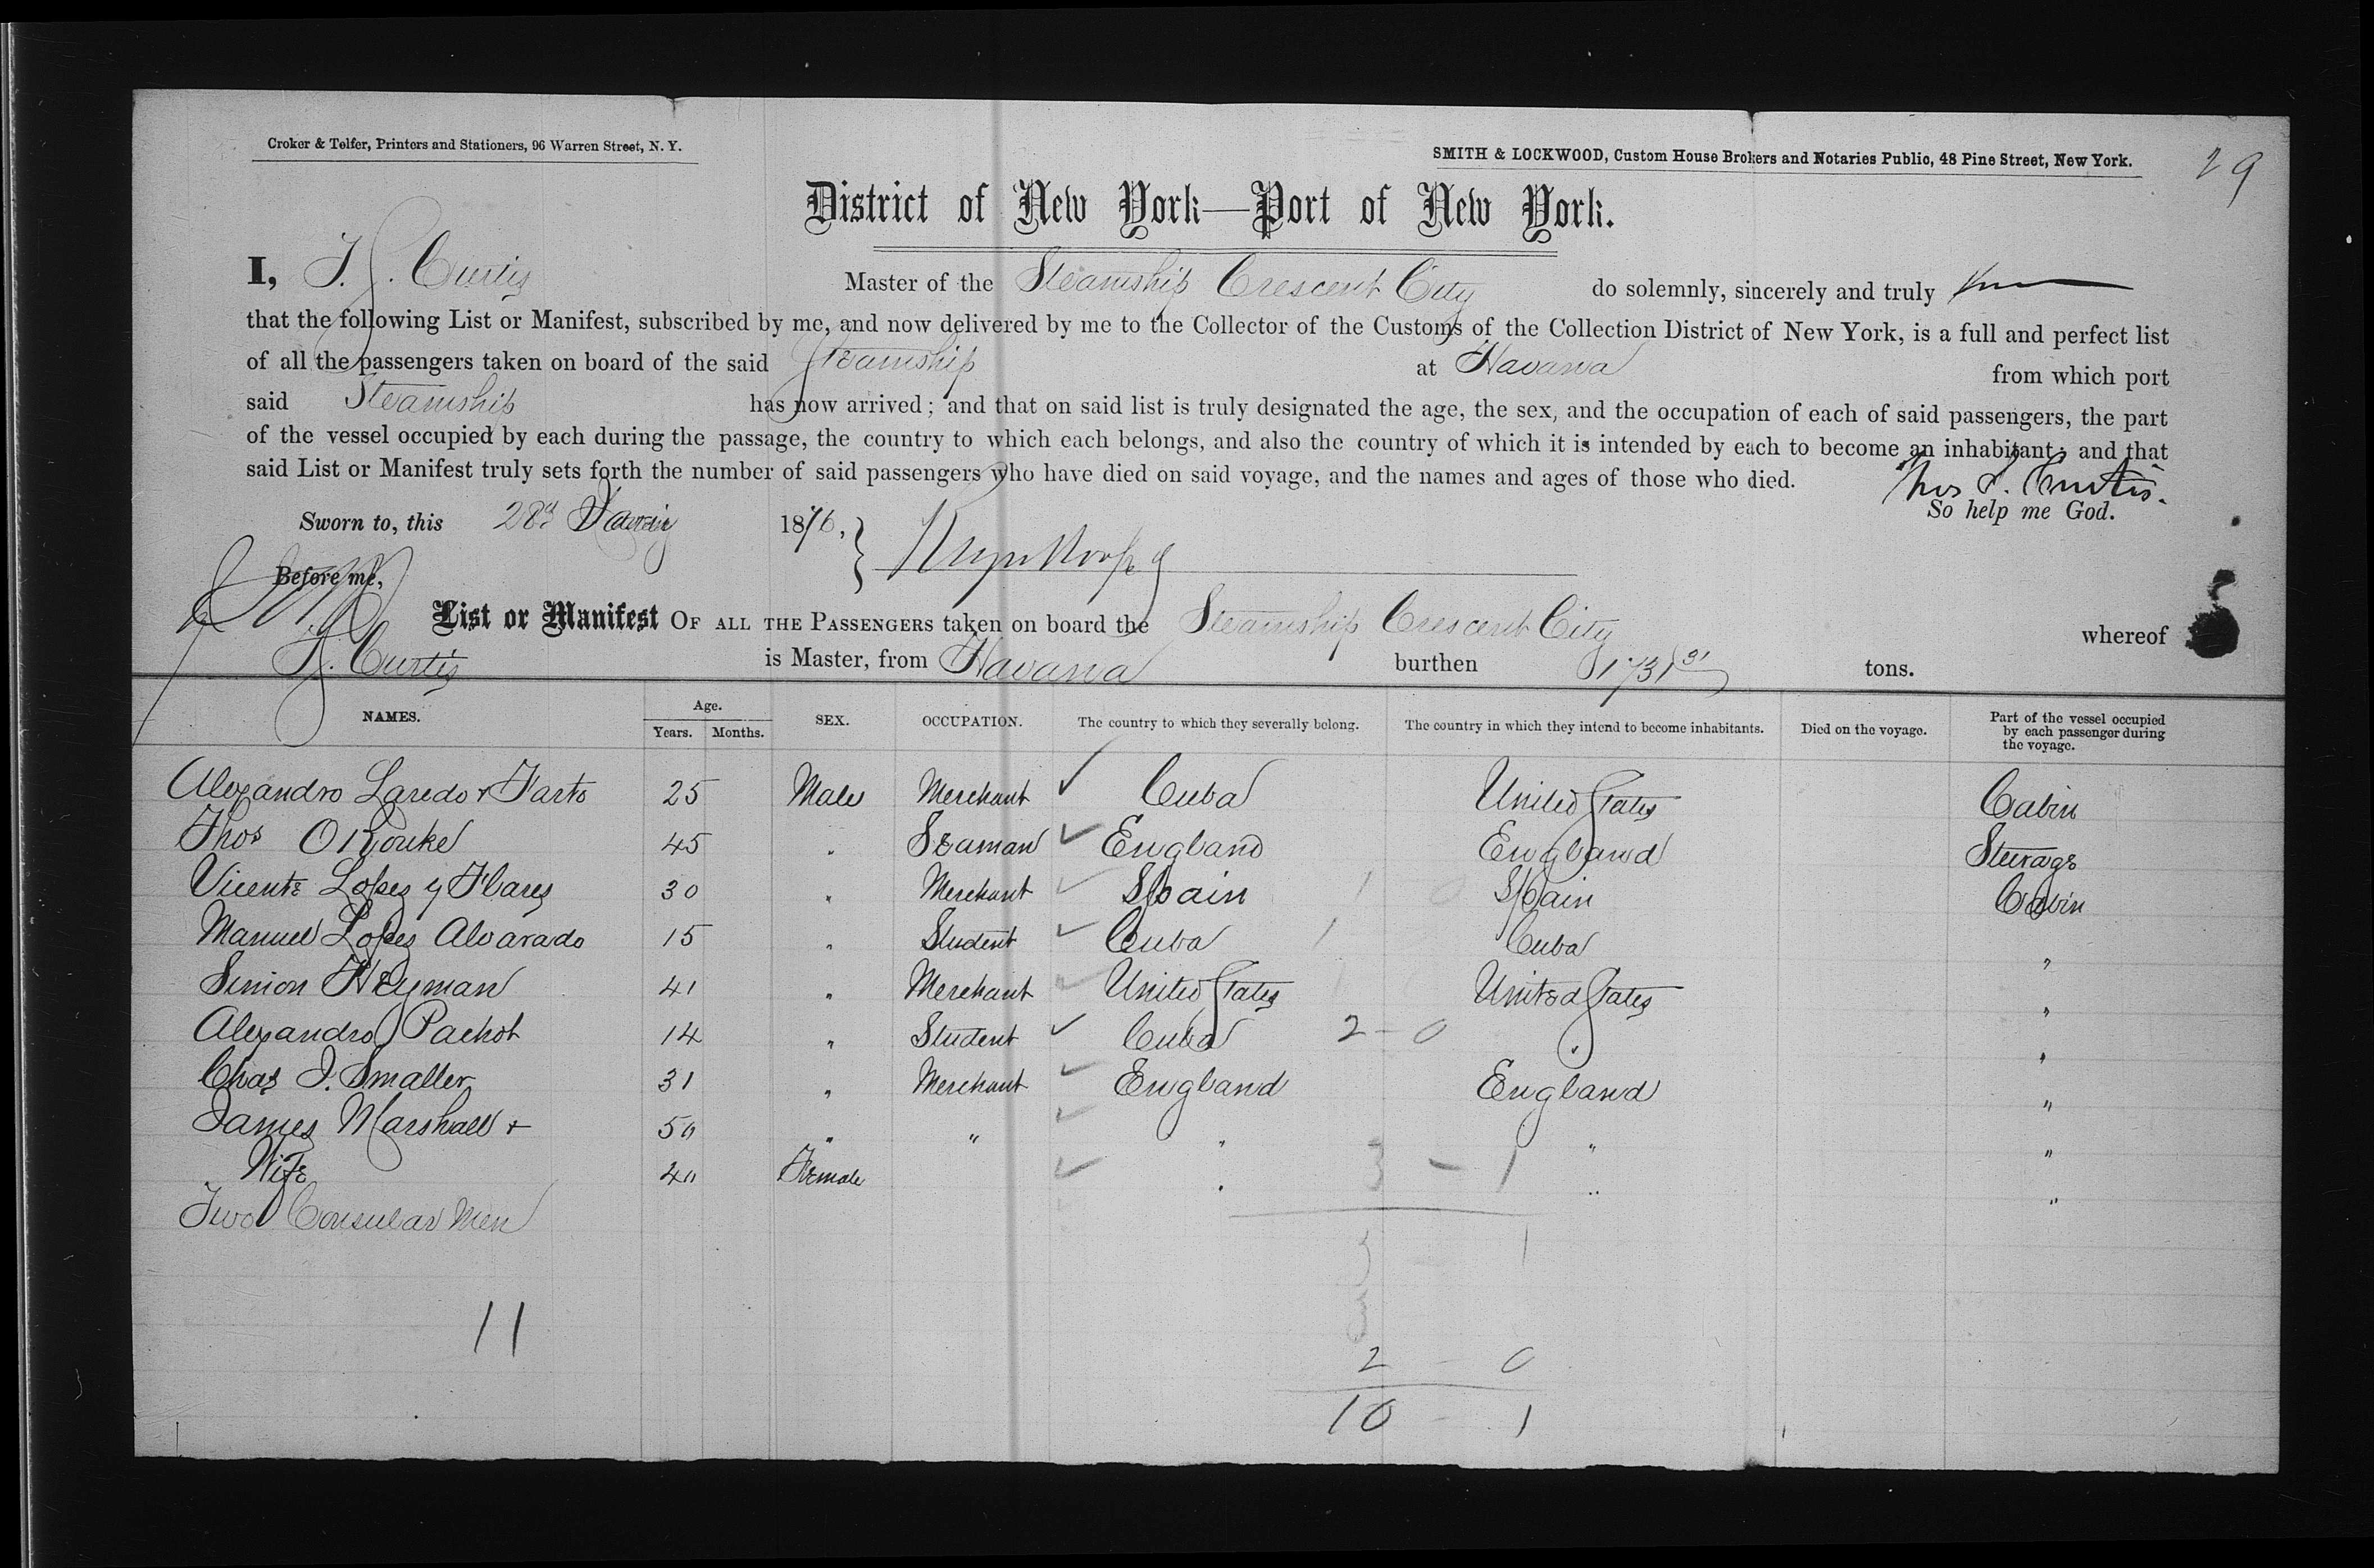 Croker & Telfer, Printers and Stationers, 96 Warren Street, N. Y.
SMITH & LOCKWOOD, Custom House Brokers and Notaries Public, 48 Pine Street, New York.
29
District of New York—Port of New York.
I, T. S. Curtis Master of the Steamship Crescent City do solemnly, sincerely and truly
that the following List or Manifest, subscribed by me, and now delivered by me to the Collector of the Customs of the Collection District of New York, is a full and perfect list
of all the passengers taken on board of the said Steamship at Havana from which port
said Steamship has now arrived; and that on said list is truly designated the age, the sex, and the occupation of each of said passengers, the part
of the vessel occupied by each during the passage, the country to which each belongs, and also the country of which it is intended by each to become an inhabitant; and that
said List or Manifest truly sets forth the number of said passengers who have died on said voyage, and the names and ages of those who died.
Thos S. Curtis.
So help me God.
Sworn to, this 28 1876,
Before me,
List or Manifest OF ALL THE PASSENGERS taken on board the Steamship Crescent City whereof
T. S. Curtis is Master, from Havana burthen 1731 31 tons.
NAMES. Age. Years. Months. SEX. OCCUPATION. The country to which they severally belong. The country in which they intend to become inhabitants. Died on the voyage. Part of the vessel occupied by each passenger during the voyage.
Alexandro Laredo y Farto 25 Male Merchant Cuba United States Cabin
Thos O Rourke 45 " Seaman England England Steerage
Vicente Lopez y Flares 30 " Merchant Spain 1 0 Spain Cabin
Manuel Lopez Alvarado 15 " Student Cuba 1 Cuba "
Simon Heyman 41 " Merchant United States United States "
Alexandro Pachot 14 " Student Cuba 2 - 0 " "
Chas J. Smaller 31 " Merchant England England "
James Marshall + 50 " " " " "
Wife 40 Female " 3 - 1 " "
Two Consular Men
3 1
11
2 - 0
10 - 1